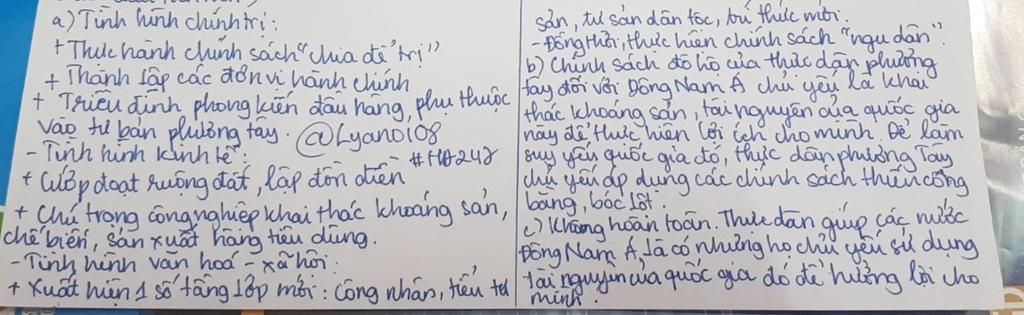 a) Tình hình chính trị:
+ Thực hành chính sách "chia để trị"
+ Thành lập các đơn vị hành chính
+ Triều đình phong kiến đầu hàng, phụ thuộc
vào tư bản phương tây. @Lyano108
- Tình hình kinh tế: #HA247
+ Cướp đoạt ruộng đất, lập đồn điền
+ Chú trọng công nghiệp khai thác khoáng sản,
chế biến, sản xuất hàng tiêu dùng.
- Tình hình văn hoá - xã hội:
+ Xuất hiện 1 số tầng lớp mới: Công nhân, tiểu tư
sản, tư sản dân tộc, trí thức mới.
- Đồng thời, thực hiện chính sách "ngu dân".
b) Chính sách đô hộ của thực dân phương
tây đối với Đông Nam Á chủ yếu là khai
thác khoáng sản, tài nguyên của quốc gia
này để thực hiện lợi ích cho mình. Để làm
suy yếu quốc gia đó, thực dân phương Tây
chủ yếu áp dụng các chính sách thiếu công
bằng, bóc lột.
c) Không hoàn toàn. Thực dân giúp các nước
Đông Nam Á, là có nhưng họ chủ yếu sử dụng
tài nguyên của quốc gia đó để hưởng lợi cho
mình.